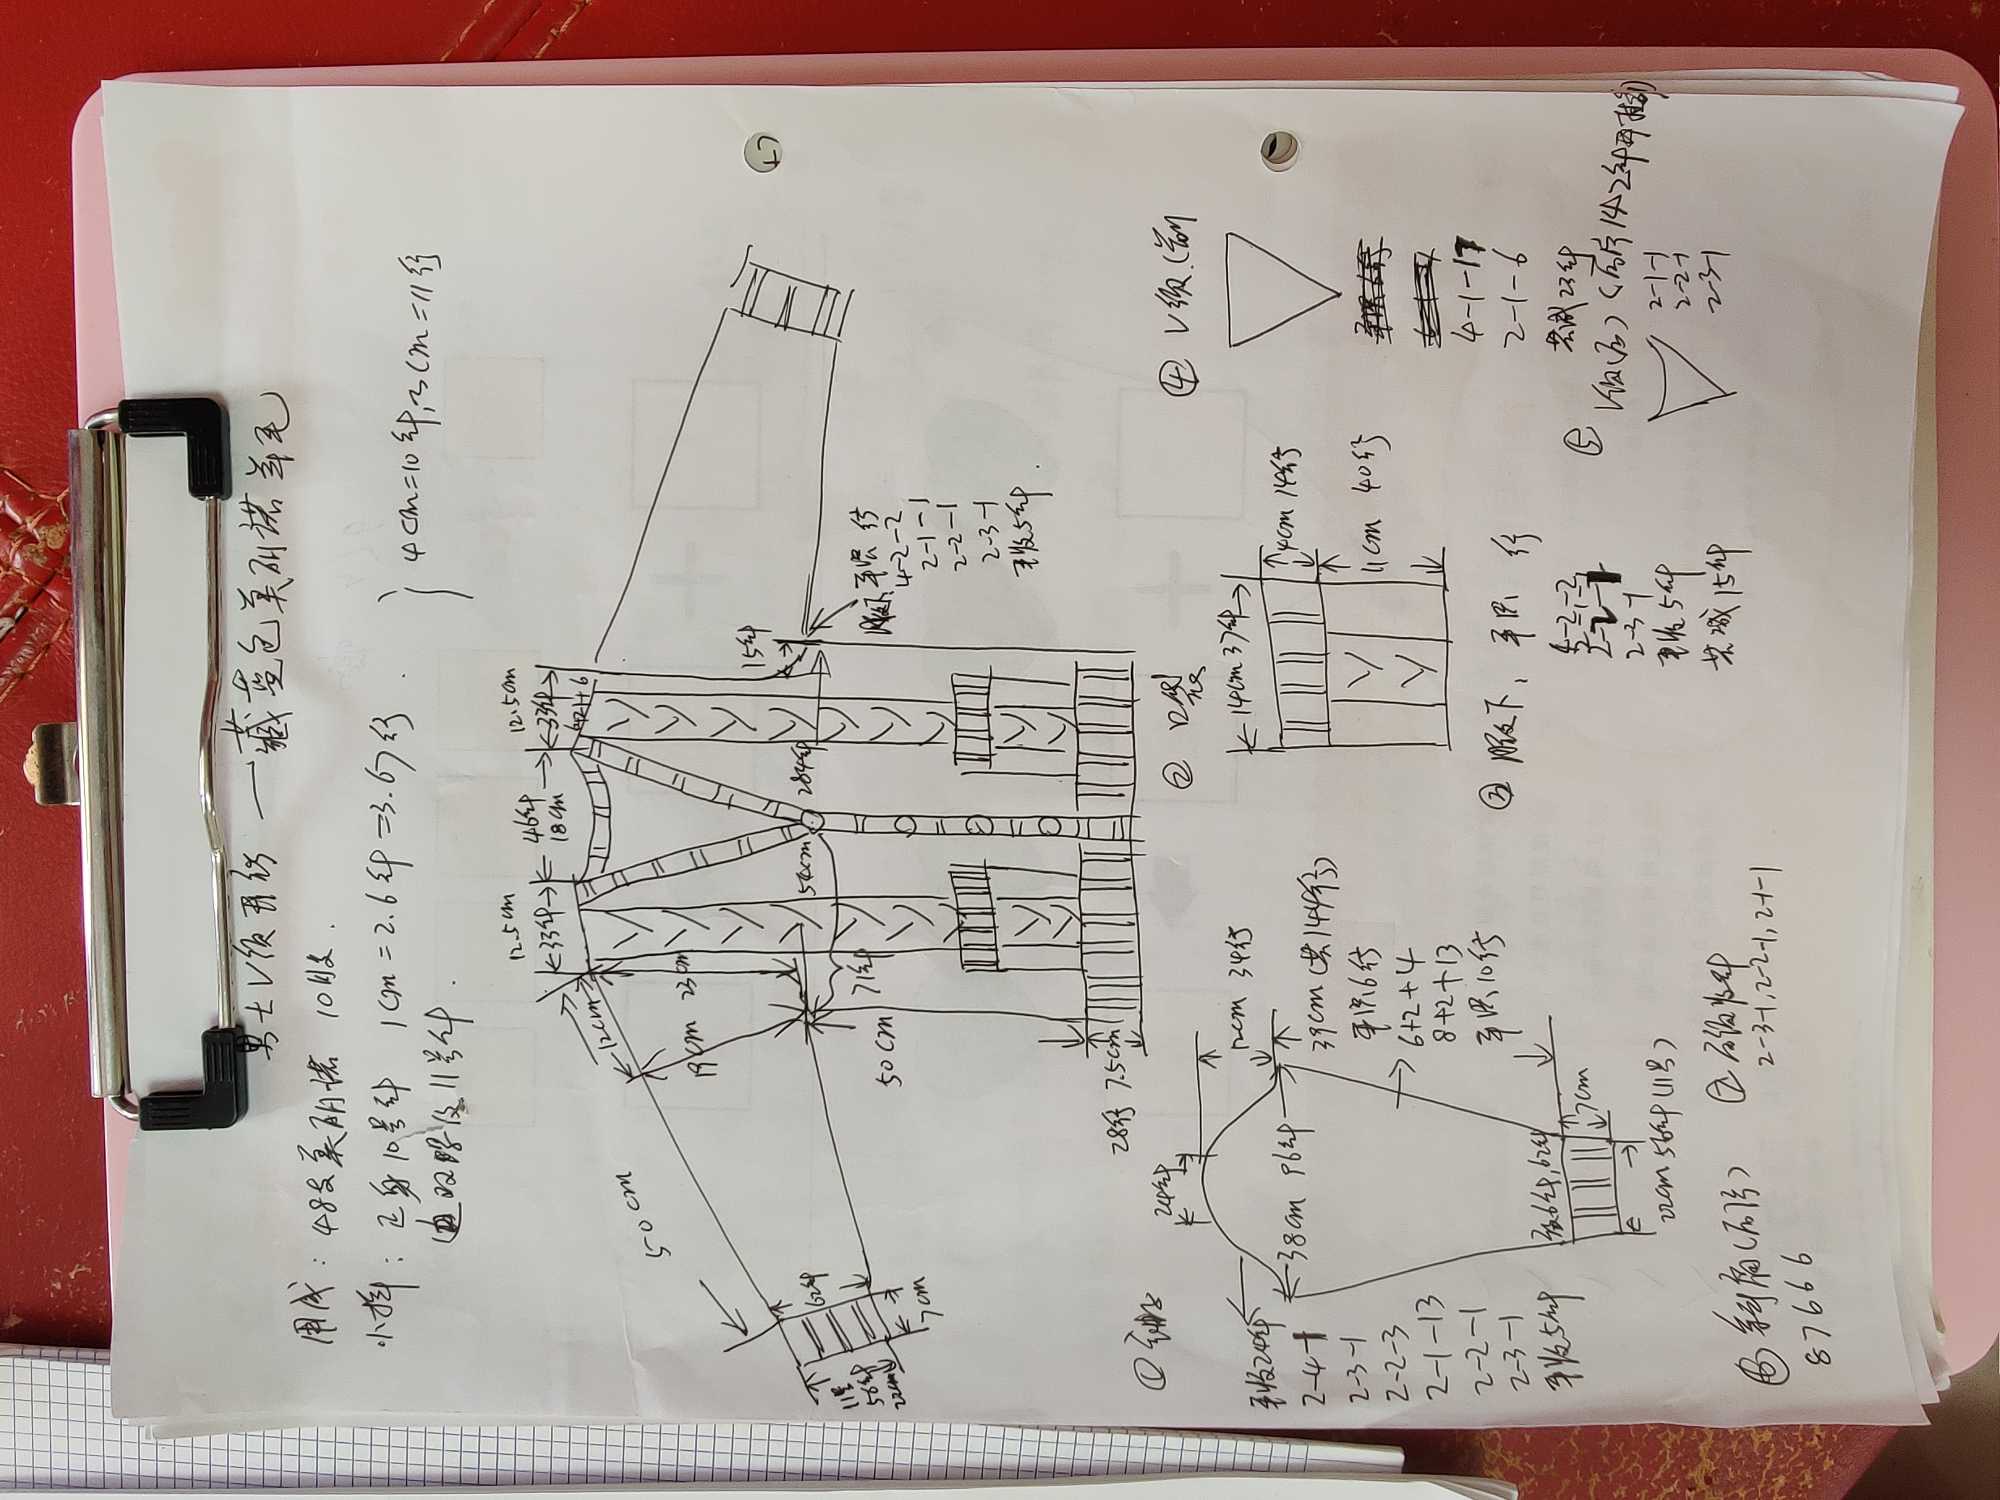 男士V领开衫 — 藏蓝色美丽诺羊毛
用线：48支美丽诺 10股.
小样：正身10号针 1cm=2.6针=3.67行
边双罗纹11号针.
} 4cm=10针, 3cm=11行
12.5cm
←33针→
←46针→
18cm
12.5cm
←33针→
4+1+6
12cm
19cm
23cm
50cm
15针
284针
54cm
71针
50cm
28行 7.5cm
62针
7cm
11号
56针
22cm
腋下：平织 行
4-2-2
2-1-1
2-2-1
2-3-1
平收5针
① 袖
24针
12cm 34行
←38cm 96针→
39cm (共144行)
平织6行
6+2+4
8+2+13
平织10行
62针
7cm
22cm 56针 (11号)
平收24针
2-4-1
2-3-1
2-2-3
2-1-13
2-2-1
2-3-1
平收5针
② 口袋
←14cm 37针→
4cm 14行
11cm 40行
③ 腋下：平织 行
4-2-2
2-3-1
平收5针
共减15针
④ V领(前)
4-1-17
2-1-6
共减23针
⑤ V领(后)
2-1-1
2-2-1
2-3-1
⑥ 斜肩(后片)
8 7 6 6 6
⑦ 后领收针
2-3-1, 2-2-1, 2-1-1